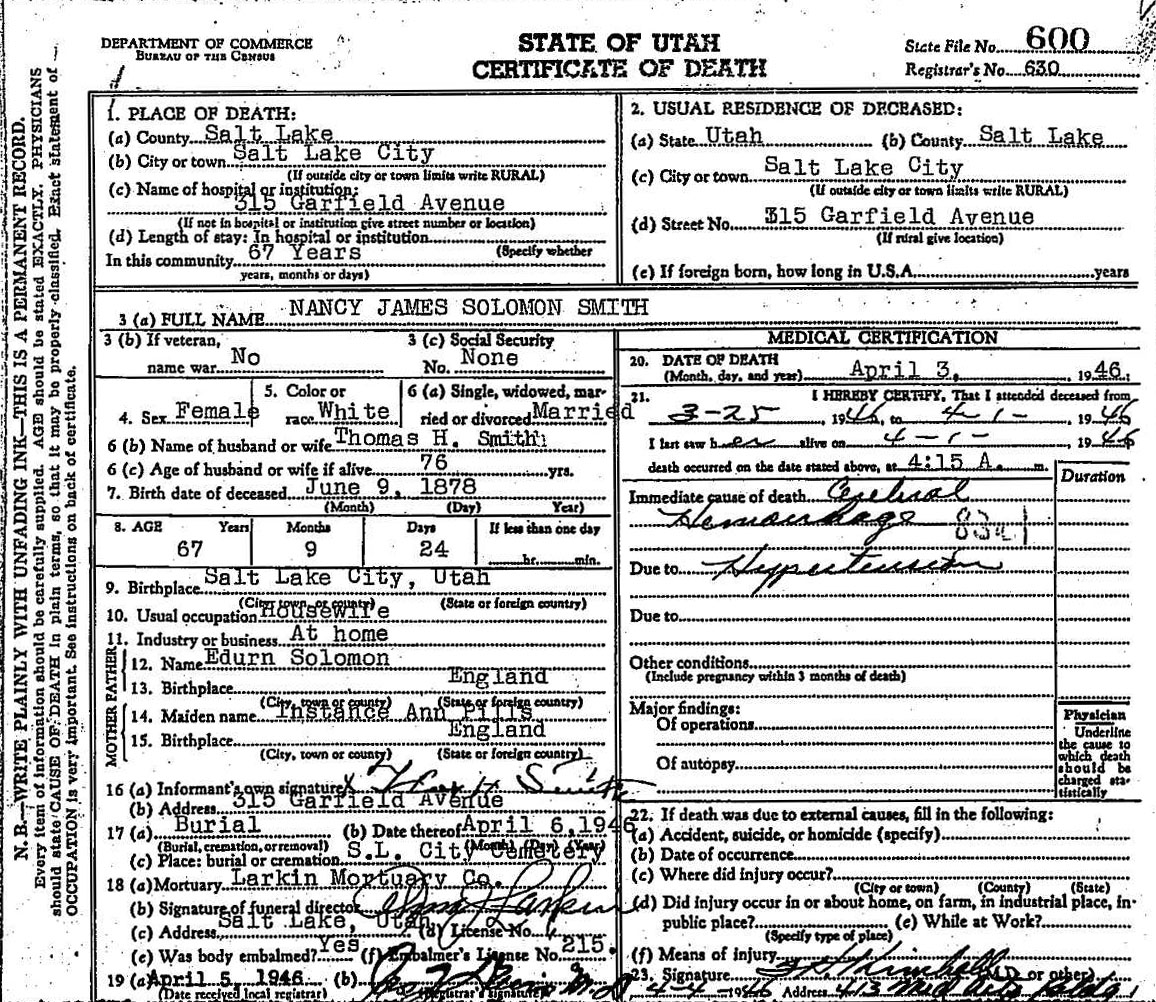 DEPARTMENT OF COMMERCE
BUREAU OF THE CENSUS
STATE OF UTAH
CERTIFICATE OF DEATH
State File No. 600
Registrar's No. 630
N. B.—WRITE PLAINLY WITH UNFADING INK—THIS IS A PERMANENT RECORD.
Every item of information should be carefully supplied. AGE should be stated EXACTLY. PHYSICIANS
should state CAUSE OF DEATH in plain terms, so that it may be properly classified. Exact statement of
OCCUPATION is very important. See instructions on back of certificate.
1. PLACE OF DEATH:
(a) County Salt Lake
(b) City or town Salt Lake City
(If outside city or town limits write RURAL)
(c) Name of hospital or institution:
315 Garfield Avenue
(If not in hospital or institution give street number or location)
(d) Length of stay: In hospital or institution
In this community 67 Years (Specify whether
years, months or days)
2. USUAL RESIDENCE OF DECEASED:
(a) State Utah (b) County Salt Lake
(c) City or town Salt Lake City
(If outside city or town limits write RURAL)
(d) Street No. 315 Garfield Avenue
(If rural give location)
(e) If foreign born, how long in U.S.A. years
3 (a) FULL NAME NANCY JAMES SOLOMON SMITH
3 (b) If veteran, name war No
3 (c) Social Security No. None
4. Sex Female
5. Color or race White
6 (a) Single, widowed, married or divorced Married
6 (b) Name of husband or wife Thomas H. Smith
6 (c) Age of husband or wife if alive 76 yrs.
7. Birth date of deceased June 9, 1878
(Month) (Day) Year)
8. AGE Years Months Days If less than one day
67 9 24 hr. min.
9. Birthplace Salt Lake City, Utah
(City, town, or county) (State or foreign country)
10. Usual occupation Housewife
11. Industry or business At home
FATHER
12. Name Edurn Solomon
13. Birthplace England
(City, town or county) (State or foreign country)
MOTHER
14. Maiden name Instance Ann Pills
15. Birthplace England
(City, town or county) (State or foreign country)
16 (a) Informant's own signature X Thos H Smith
(b) Address 315 Garfield Avenue
17 (a) Burial (b) Date thereof April 6, 1946
(Burial, cremation, or removal) (Month) (Day) (Year)
(c) Place: burial or cremation S.L. City Cemetery
18 (a) Mortuary Larkin Mortuary Co.
(b) Signature of funeral director Larkin
(c) Address Salt Lake, Utah (d) License No.
(e) Was body embalmed? Yes (f) Embalmer's License No. 215.
19 (a) April 5, 1946 (b)
(Date received local registrar) (Registrar's signature)
MEDICAL CERTIFICATION
20. DATE OF DEATH
(Month, day, and year) April 3, 1946.
21. I HEREBY CERTIFY, That I attended deceased from
3-25, 1946, to 4-1-, 1946
I last saw her alive on 4-1-, 1946
death occurred on the date stated above, at 4:15 A. m.
Duration
Immediate cause of death Cerebral
Hemorrhage 83a
Due to Hypertension
Due to
Other conditions
(Include pregnancy within 3 months of death)
Major findings:
Of operations
Of autopsy
Physician
Underline
the cause to
which death
should be
charged sta-
tistically
22. If death was due to external causes, fill in the following:
(a) Accident, suicide, or homicide (specify)
(b) Date of occurrence
(c) Where did injury occur?
(City or town) (County) (State)
(d) Did injury occur in or about home, on farm, in industrial place, in
public place? (e) While at Work?
(Specify type of place)
(f) Means of injury
23. Signature Kimball (M.D. or other)
4-4-1946 Address 413 Med Arts Bldg